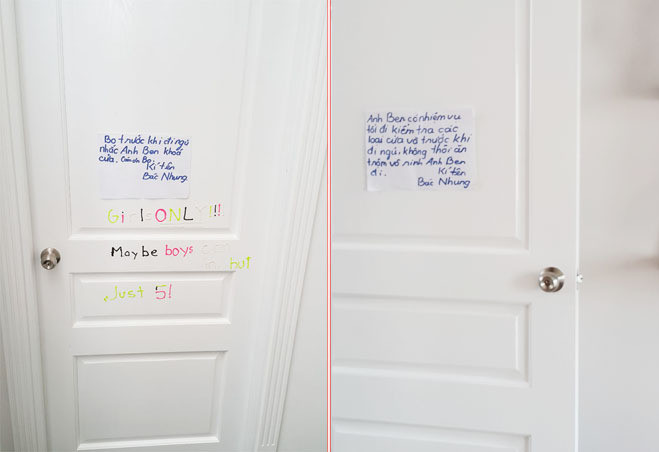 Bo trước khi đi ngủ
nhắc Anh Ben khoá
cửa. Cảm ơn Bo.
Kí tên
Bác Nhung
Girls ONLY!!!
Maybe boys can
but
Just 5!
Anh Ben có nhiệm vụ
tối đi kiểm tra các
loại cửa vô trước khi
đi ngủ, không thôi ăn
trộm vô rinh Anh Ben
đi.
Kí tên
Bác Nhung